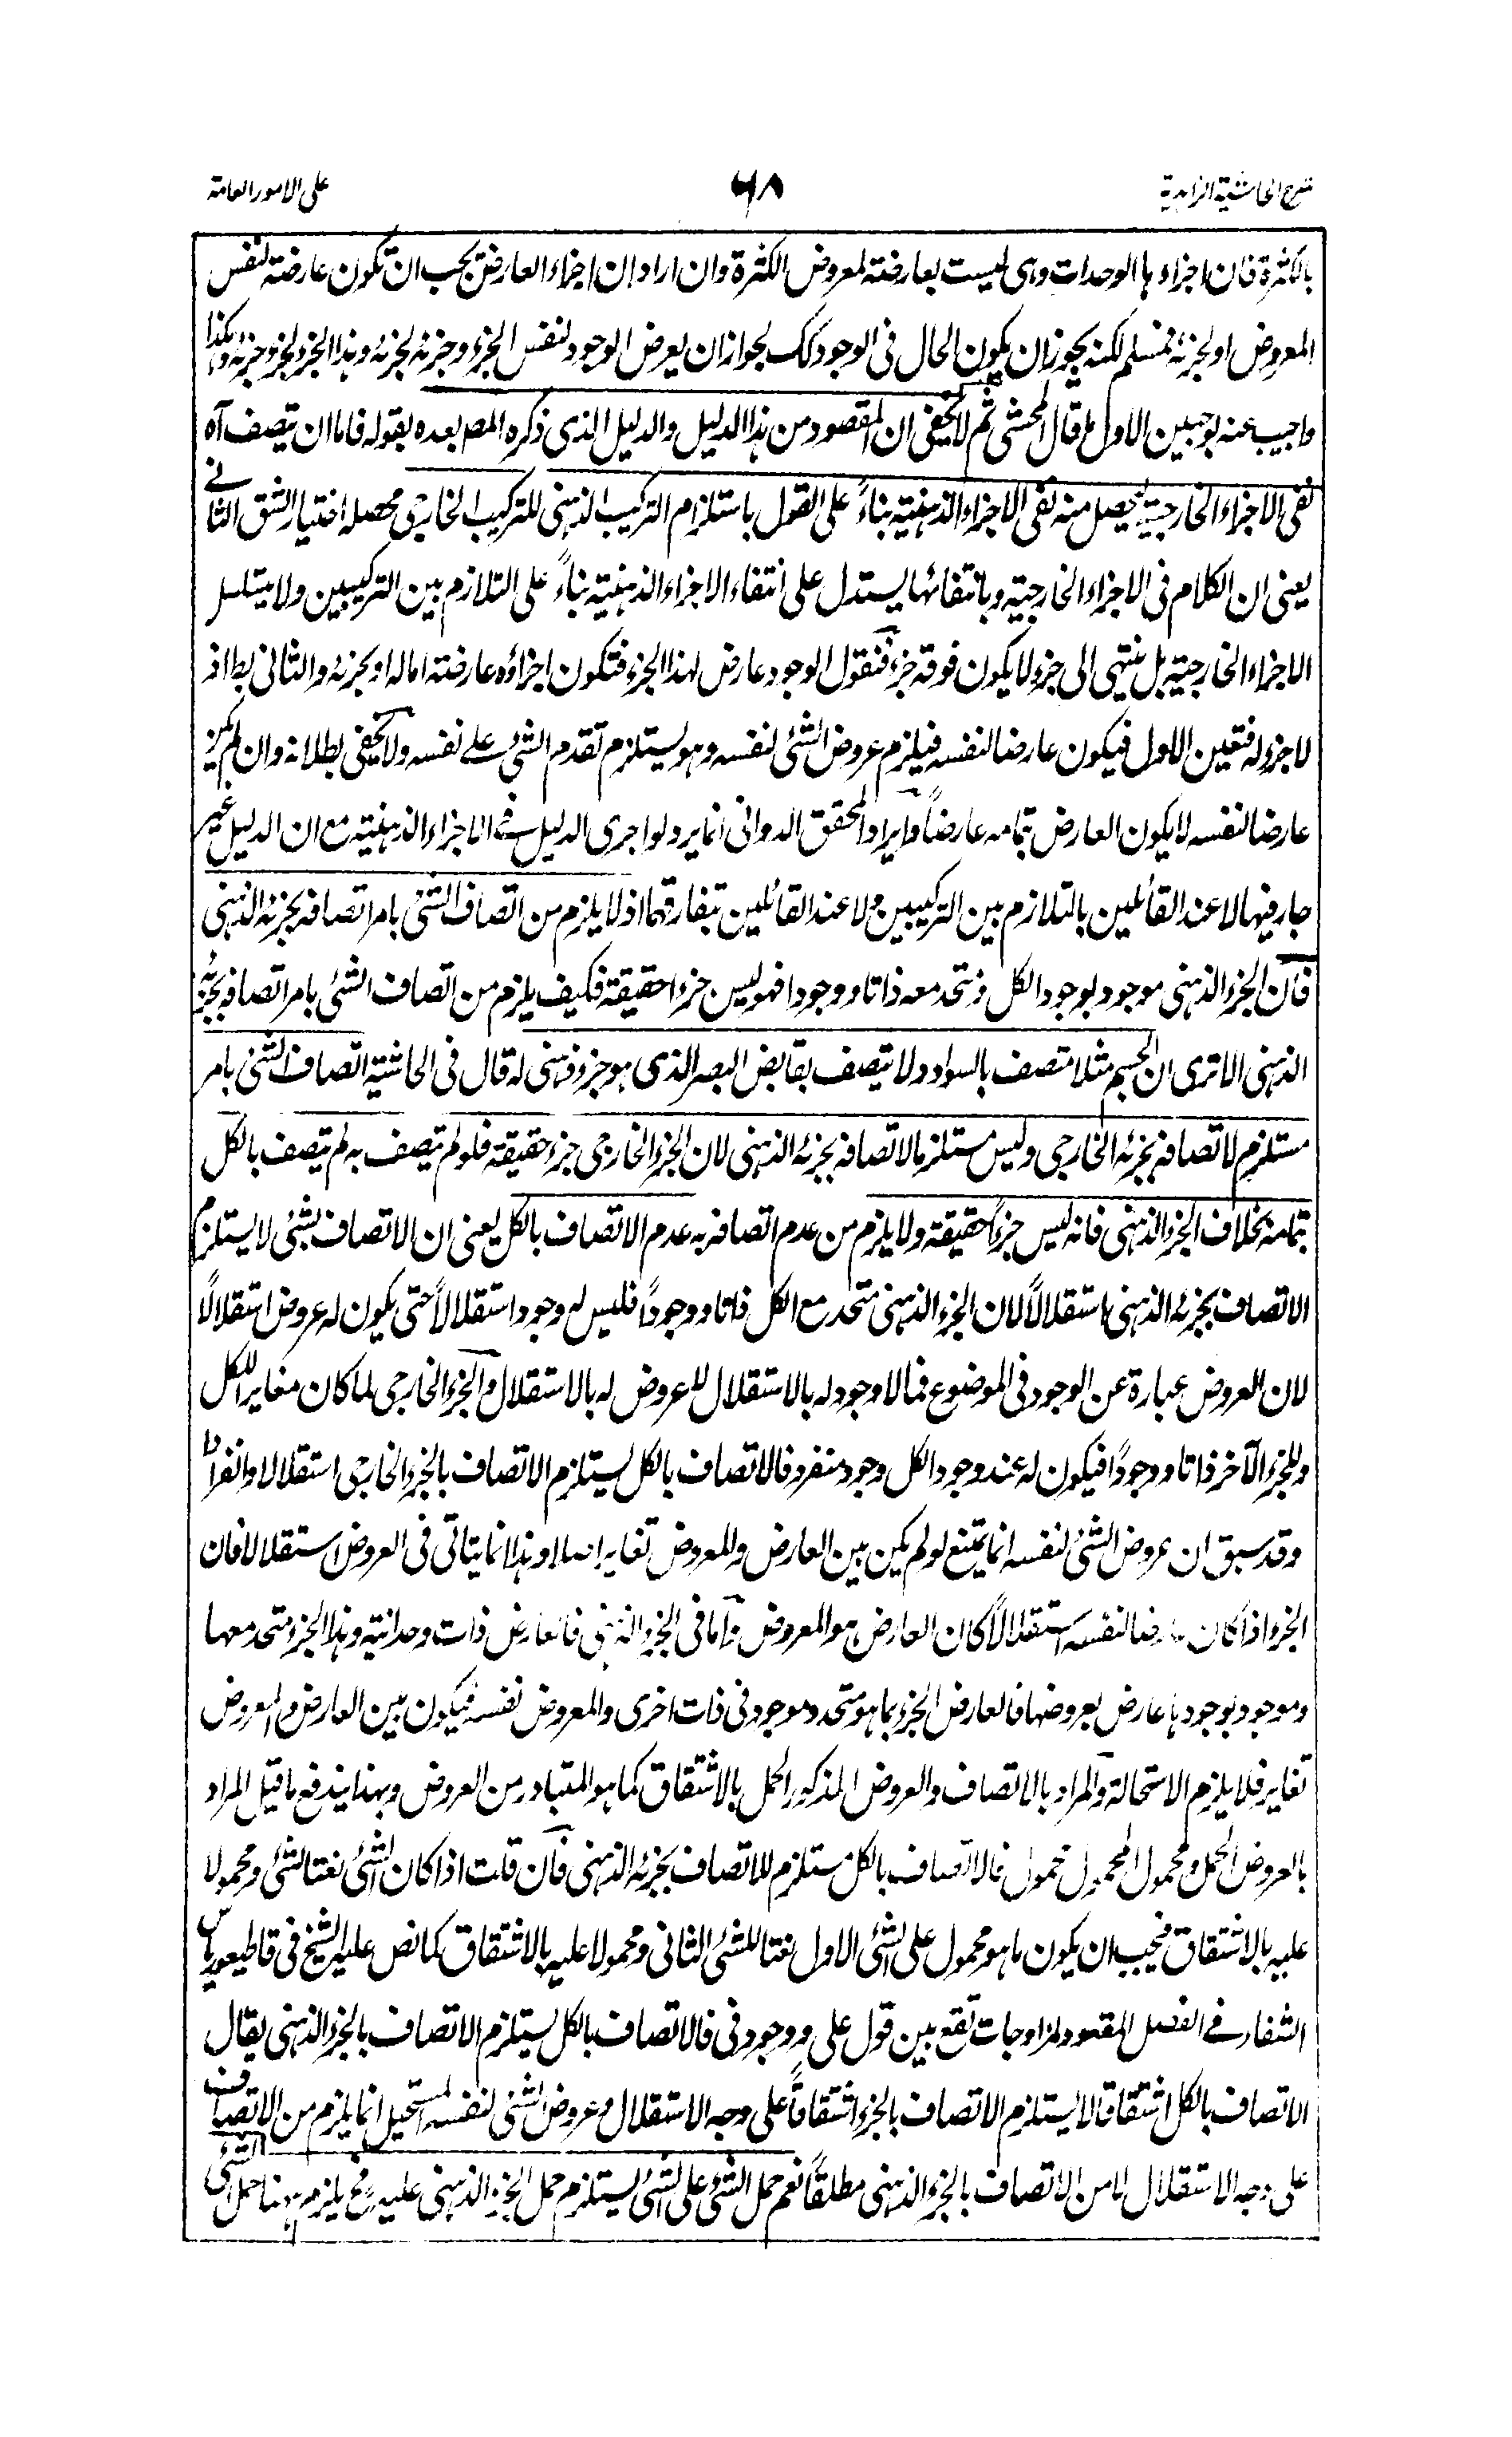 شرح الحاشية الزاهدية
٦٨
على الامور العامة
بالكثرة فان اجزاءها الوحدات وهى ليست بعارضة لمعروض الكثرة وان اراد ان اجزاء العارض يجب ان تكون عارضة لنفس
المعروض او لجزئه فمسلم لكنه يجوز ان يكون الحال فى الوجود كك لجواز ان يعرض الوجود لنفس الجزء وجزئه لجزئه وهذا الجزء لجزء جزئه وهكذا
واجيب عنه بوجهين الاول ما قال المحشى ثم لا يخفى ان المقصود من هذا الدليل والدليل الذى ذكره المصـ بعده بقوله فاما ان تتصف آه
نفى الاجزاء الخارجية ليحصل منه نفى الاجزاء الذهنية بناءً على القول باستلزام التركيب الذهنى للتركيب الخارجى محصله اختيار الشق الثانے
يعنى ان الكلام فى الاجزاء الخارجية وبانتفائها يستدل على انتفاء الاجزاء الذهنية بناءً على التلازم بين التركيبين ولا يتسلسل
الاجزاء الخارجية بل ينتهى الى جزء لا يكون فوقه جزء فنقول الوجود عارض لهذا الجزء فتكون اجزاؤه عارضة اما له او بجزئه والثانى بط اذ
لا جزء له فتعين الاول فيكون عارضا لنفسه فيلزم عروض الشئ لنفسه وهو يستلزم تقدم الشئ علے نفسه ولا يخفى بطلانه وان لم يكن
عارضا لنفسه لا يكون العارض بتمامه عارضاً وايراد المحقق الدوانى انما يرد لو اجرى الدليل فے الاجزاء الذهنية مع ان الدليل غير
جار فيها لا عند القائلين بالتلازم بين التركيبين ولا عند القائلين بتفارقهما اذ لا يلزم من اتصاف الشئ بامر اتصافه بجزئه الذهنى
فان الجزء الذهنى موجود بوجود الكل ومتحد معه ذاتا ووجودا فهو ليس جزءا حقيقة فكيف يلزم من اتصاف الشئ بامر اتصافه بجزئه
الذهنى الا ترى ان الجسم مثلا متصف بالسواد ولا يتصف بقابض البصر الذى هو جزء ذهنى له قال فى الحاشية اتصاف الشئ بامر
مستلزم لاتصافه بجزئه الخارجى وليس مستلزما لاتصافه بجزئه الذهنى لان الجزء الخارجى جزء حقيقة فلو لم يتصف به لم يتصف بالكل
بتمامه بخلاف الجزء الذهنى فانه ليس جزءاً حقيقة ولا يلزم من عدم اتصافه به عدم الاتصاف بالكل يعنى ان الاتصاف بشئ لا يستلزم
الاتصاف بجزئه الذهنى استقلالاً لان الجزء الذهنى متحد مع الكل ذاتا ووجوداً فليس له وجود استقلالاً حتى يكون له عروض استقلالاً
لان العروض عبارة عن الوجود فى الموضوع فما لا وجود له بالاستقلال لا عروض له بالاستقلال والجزء الخارجى لما كان مغايرا للكل
وللجزء الآخر ذاتا ووجوداً فيكون له عند وجود الكل وجود منفرد فالاتصاف بالكل يستلزم الاتصاف بالجزء الخارجى استقلالا وانفرادا
وقد سبق ان عروض الشئ لنفسه انما يمتنع لو لم يكن بين العارض والمعروض تغاير اصلا وهذا انما يتاتى فى العروض استقلالا فان
الجزء اذا كان عارضا لنفسه استقلالاً كان العارض هو المعروض واما فى الجزء الذهنى فالعارض ذات وحدانية وهذا الجزء متحد معها
وموجود بوجودها عارض بعروضها فالعارض الجزء بما هو متحد وموجود فى ذات اخرى والمعروض نفسه فيكون بين العارض والمعروض
تغاير فلا يلزم الاستحالة والمراد بالاتصاف والعروض المذكور الحمل بالاشتقاق كما هو المتبادر من العروض وبهذا يندفع ما قيل المراد
بالعروض الحمل ومحمول المحمول محمول فالاتصاف بالكل مستلزم للاتصاف بجزئه الذهنى فان قلت اذا كان الشئ نعتا لشئ ومحمولا
عليه بالاشتقاق فيجب ان يكون ما هو محمول على الشئ الاول نعتا للشئ الثانى ومحمولا عليه بالاشتقاق كما نص عليه الشيخ فى قاطيغورياس
الشفاء فے الفصل المعقود لمزاوجات تقع بين قول على ووجود فى فالاتصاف بالكل يستلزم الاتصاف بالجزء الذهنى يقال
الاتصاف بالكل اشتقاقا لا يستلزم الاتصاف بالجزء اشتقاقاً على وجه الاستقلال وعروض الشئ لنفسه المستحيل انما يلزم من الاتصاف
على وجه الاستقلال لا من الاتصاف بالجزء الذهنى مطلقاً نعم حمل الشئ على الشئ يستلزم حمل الجزء الذهنى عليه فح يلزم ههنا حمل الشئ